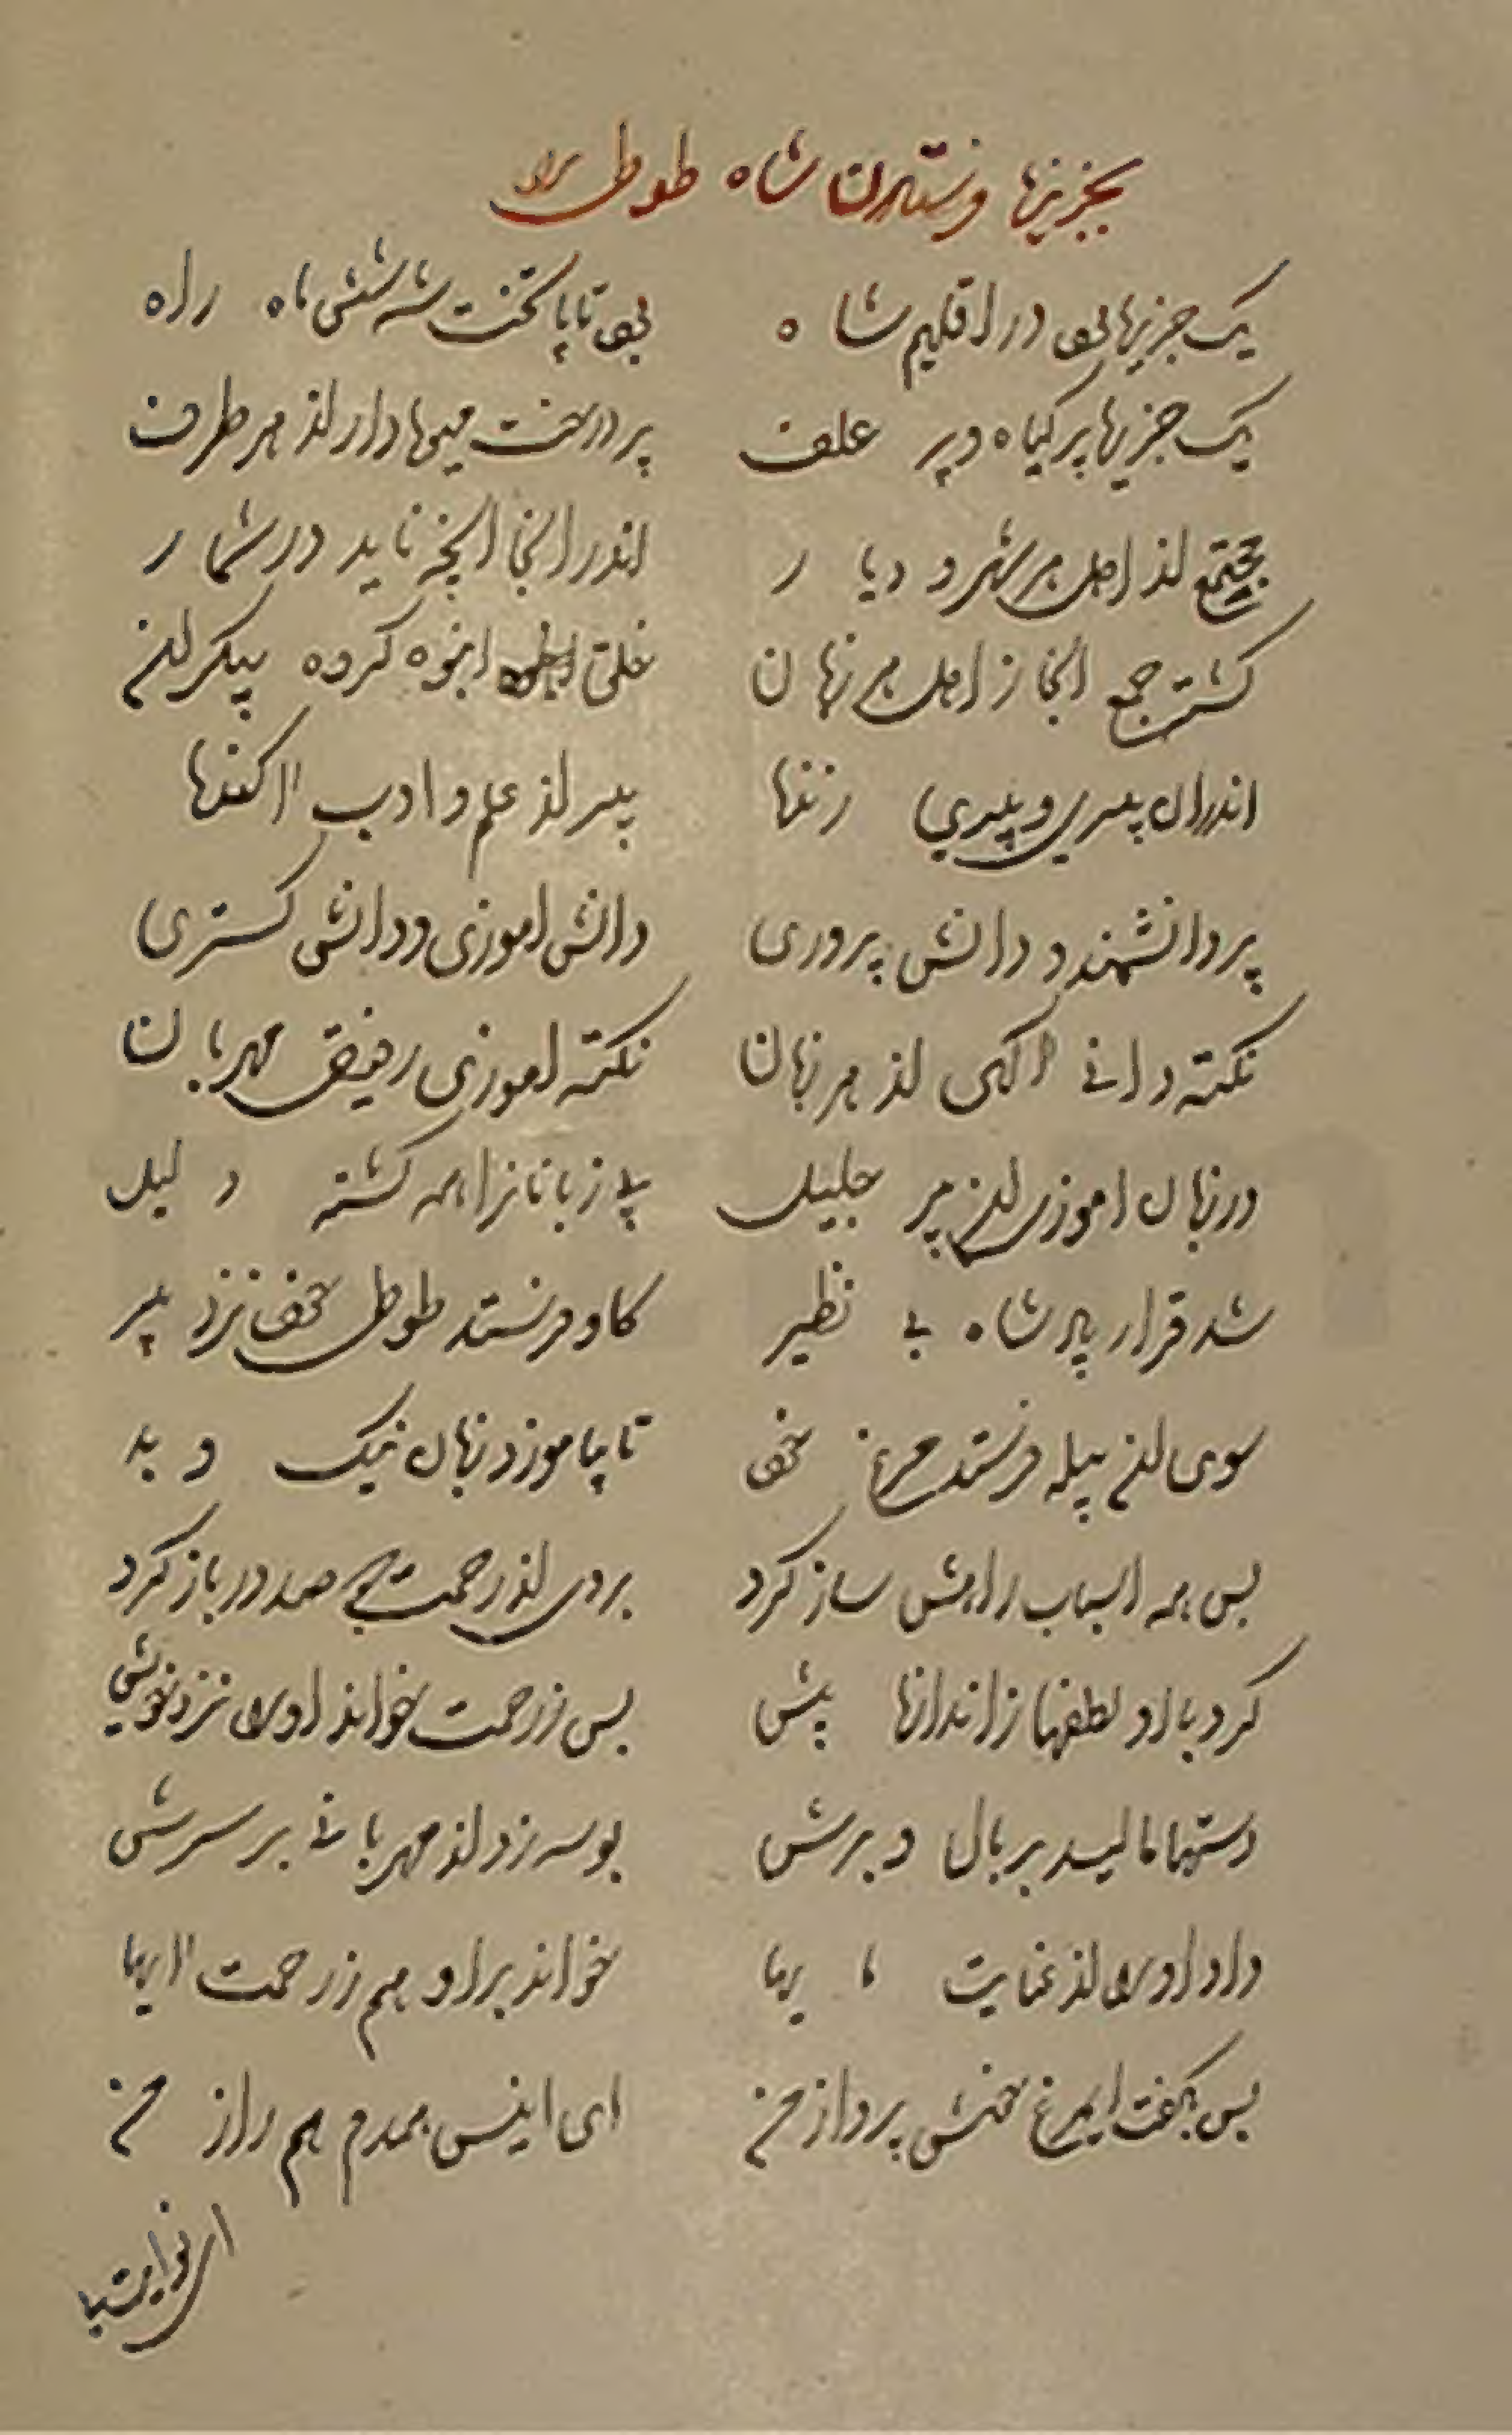 بجزیرها فرستادن شاه طوطی را
یک جزیرها بود در اقلیم شاه بود تا پا تخت شه ششماه راه
یک جزیرها پر گیاه و پر علف پر درخت میوها دار از هر طرف
مجتمع از اهل هر شهر و دیار اندر انجا انچه ناید در شمار
گشته جمع انجا ز اهل هر زبان خلق انبوه کرده بیکران
اندران پیری و پیری زندها پیر از علم و ادب اکندها
پر دانشمند و دانش پروری دانش اموزی و دانش کستری
نکته دانی اکهی از هر زبان نکته اموزی رفیق مهربان
در زبان اموزی ان پیر جلیل بی زبانانرا همه کشته دلیل
شد قرار پادشاه بی نظیر کاو فرستد طوطی خود نزد پیر
سوی ان پیله فرستد مرغ خود تا بیاموزد زبان نیک و بد
پس همه اسباب راهش ساز کرد بروی از رحمت صد در باز کرد
کرد با او لطفها ز اندازها بیش پس ز رحمت خواند او را نزد خویش
دستها مالید بر بال و برش بوسه زد از مهربانی بر سرش
داد او را از عنایت ما یها خواند بر او هم ز رحمت ایها
پس بگفت ایمرغ خوش پرواز من ای انیس همدم هم راز من